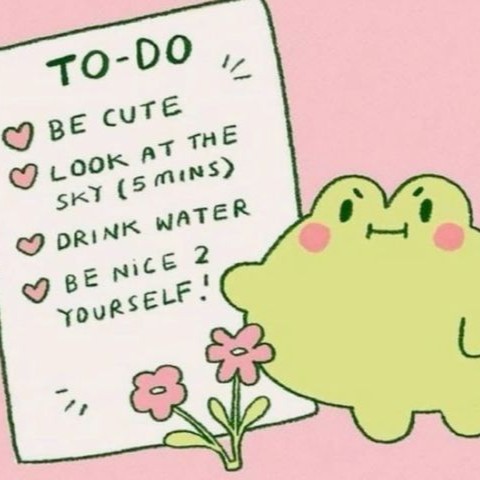 TO-DO
BE CUTE
LOOK AT THE
SKY (5 MINS)
DRINK WATER
BE NICE 2
YOURSELF!